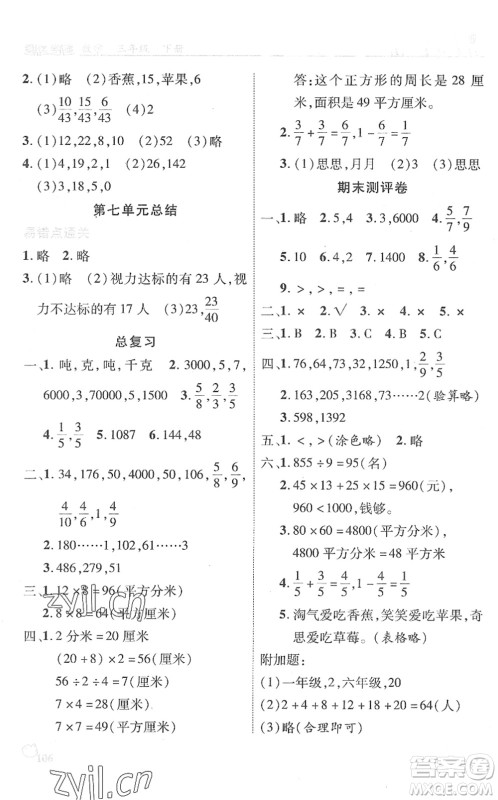 数学 三年级 下册
2.(1)略 (2)香蕉,苹果,6
(3)10/43,15/43,12/43,6/43 (4)2
3.(1)12,22,8 (2)9,10 (3)略
4.(1)4,19,2,1 (2)26,142
(3)3,18,5,0
第七单元总结
易错点通关
1.略 2.略
3.(1)略 (2)视力达标的有 23 人,视
力不达标的有 17 人 (3)23/40
总复习
一、1.吨,克,吨,千克 2.3000,5,7,
6000,3000,70000,1500 3.5/8,2/3,3/5
4.1/5,3/5 5.1087 6.144,36
二、1.34,176,50,4000,360,5/8,6/9,
4/10,4/6,1,4/9
2.180……1,61,63……4
3.486,279,51
三、1.12×8=96(平方分米)
2.8×8=64(平方分米)
四、1.2 分米=20(厘米)
(20+8)×2=56(厘米)
7×4=28(厘米)
7×7=49(平方厘米)
106
zyjl.cn
答:这个正方形的周长是 28 厘
米,面积是 49 平方厘米。
2.3/7+3/7=6/7,1-6/7=1/7
3.(1)思思,月月 (2)3 (3)思思
期末测评卷
一、1.略 2.1.5 3.3,6000 4.5/7,7/9
5.10 6.64 7.120 8.略
9.>,>,=,=
二、1.× 2.√ 3.×
三、1.B 2.B 3.C 4.B
四、1.76,64,73,32,1250,1,2/9,3/5
2.163,205,3168,73……2(验算略)
3.598,1392
五、1.<,>(涂色略) 2.略
六、1.855÷9=95(名)
2.45×13+25×15=960(元),
960<1000,钱够。
3.80×60=4800(平方分米)
4800 平方分米=48 平方米
4.2/5+2/5=4/5,1-4/5=1/5
5.淘气爱吃香蕉,笑笑爱吃苹果,奇
思爱吃草莓。(表格略)
附加题:
(1)一年级,2,六年级,20
(2)2+4+8+12+18+20=64(人)
(3)略(合理即可)
zyjl.cn